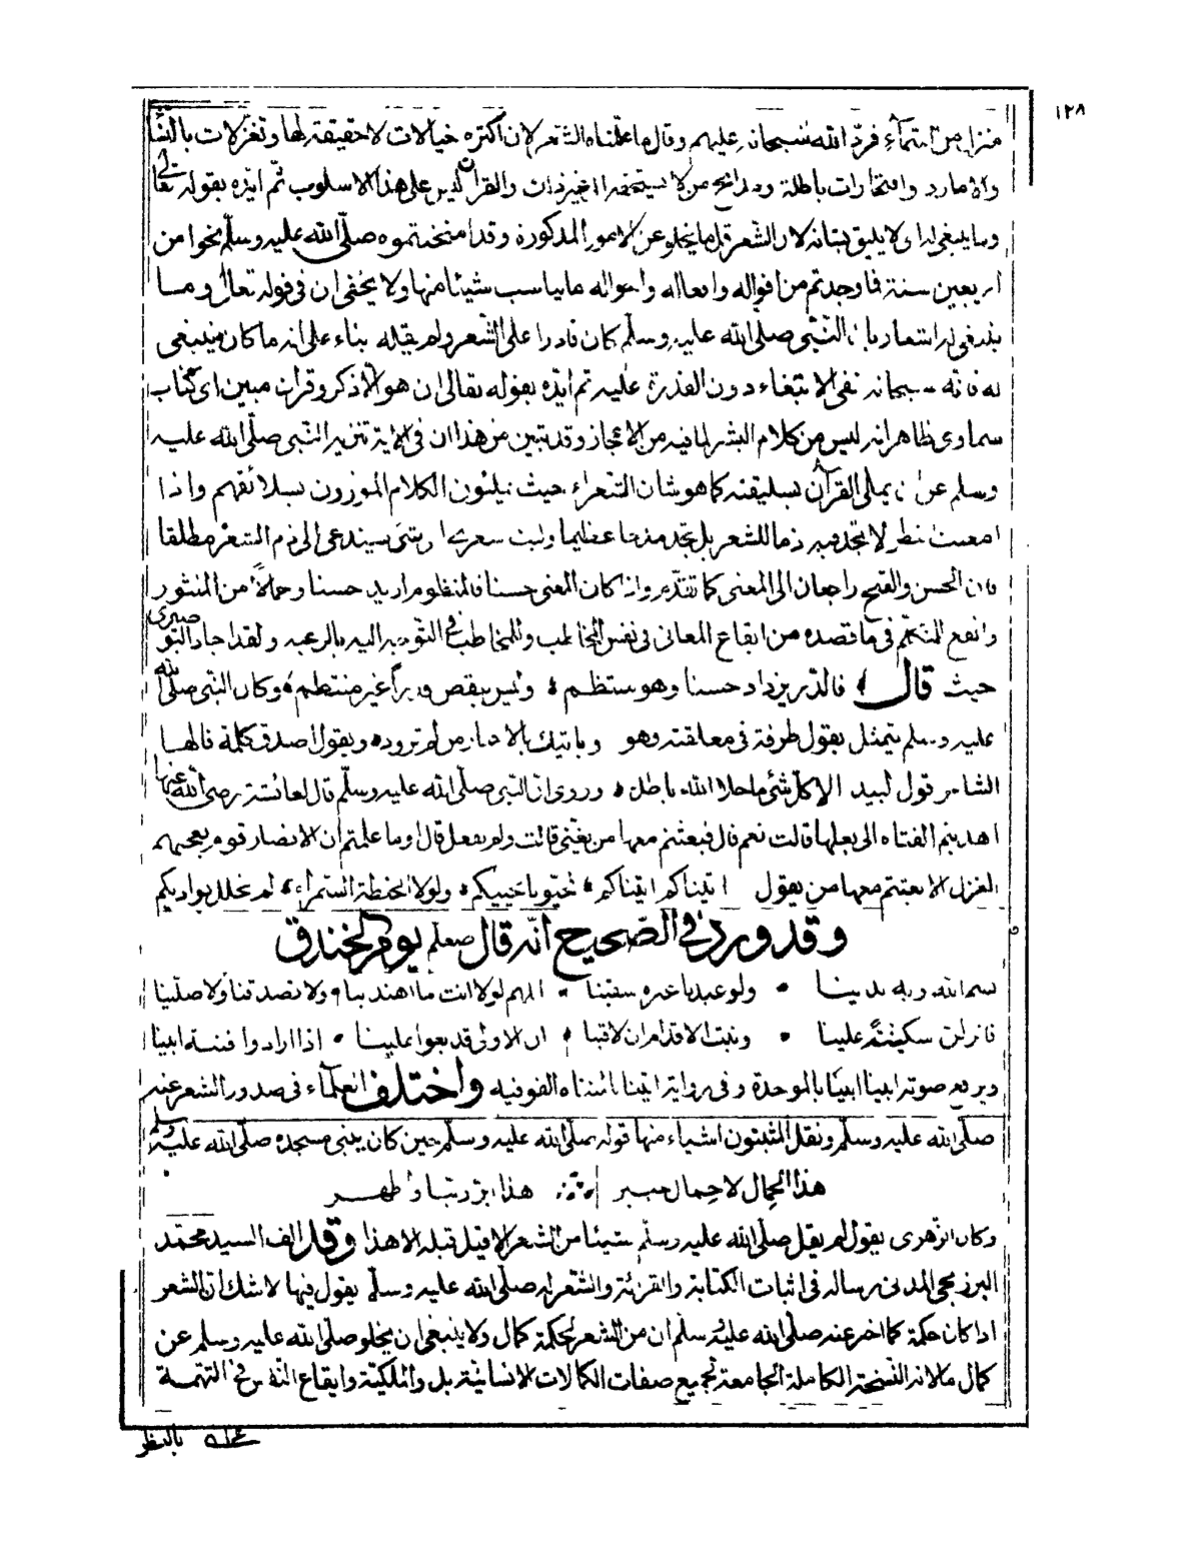 ١٢٨
منزلا من السماء فرد الله سبحانه عليهم وقال وما علمناه الشعر لان اكثره خيالات لا حقيقة لها وتغزلات بالنسا
والامارد وافتخارات باطلة ومدائح من لا يستحقها الى غير ذلك والقران ليس على هذا الاسلوب ثم ايده بقوله تعالى
وما ينبغى له اى لا يليق بشانه لان الشعر قل ما يخلو عن الامور المذكورة وقد امتحنتموه صلى الله عليه وسلم نحوا من
اربعين سنة فما وجدتم من اقواله وافعاله واحواله ما يناسب شيئا منها ولا يخفى ان فى قوله تعالى وما
ينبغى له اشعار بان النبى صلى الله عليه وسلم كان قادرا على الشعر ولم يقله بناء على انه ما كان ينبغى
له فانه سبحانه نفى الابتغاء دون القدرة عليه ثم ايده بقوله تعالى ان هو الا ذكر وقران مبين اى كتاب
سماوى ظاهر انه ليس من كلام البشر لما فيه من الاعجاز وقد تبين من هذا ان فى الاية تنزيه النبى صلى الله عليه
وسلم عن ان يملى القرآن بسليقته كما هو شان الشعراء حيث يلقون الكلام الموزون بسلائقهم واذا
امعنت نظر لا تجد فيه ذما للشعر بل تجد مدحا عظيما وليت شعرى اى شئ يستدعى الى ذم الشعر مطلقا
فان الحسن والقبح راجعان الى المعنى كما تقدم واذا كان المعنى حسنا فالمنظوم ازيد حسنا وجمالا من المنثور
وانفع للمتكلم فى ما قصده من ايقاع المعانى فى نفس المخاطب وللمخاطب فى التوجه اليه بالرغبة ولقد اجاد البوصيرى
حيث قال فالدر يزداد حسنا وهو منتظم وليس ينقص قدرا غير منتظم وكان النبى صلى الله
عليه وسلم يتمثل بقول طرفة فى معلقته وهو وياتيك بالاخبار من لم تزوده ويقول اصدق كلمة قالها
الشاعر قول لبيد الا كل شئ ما خلا الله باطل وروى ان النبى صلى الله عليه وسلم قال لعائشة رضى الله عنها
اهديتم الفتاه الى بعلها قالت نعم قال فبعثتم معها من يغنى قالت ولم نفعل قال اوما علمتم ان الانصار قوم يعجبهم
الغزل الا بعثتم معها من يقول اتيناكم اتيناكم فحيونا نحييكم ولولا الحنطة السمراء لم نحلل بواديكم
وقد ورد فى الصحيح انه قال صلعم يوم الخندق
بسم الله وبه بدينا ولو عبدنا غيره شقينا اللهم لولا انت ما اهتدينا ولا تصدقنا ولا صلينا
فانزلن سكينة علينا وثبت الاقدام ان لاقينا ان الاولى قد بغوا علينا اذا ارادوا فتنة ابينا
ويرفع صوته ابينا ابينا بالموحدة وفى رواية اتينا بالمثناه الفوقيه واختلف العلماء فى صدور الشعر عنه
صلى الله عليه وسلم ونقل المثبتون اشياء منها قوله صلى الله عليه وسلم حين كان يبنى مسجده صلى الله عليه وسلم
هذا الحمال لا حمال خيبر هذا ابر ربنا واطهر
وكان الزهرى يقول لم يقل صلى الله عليه وسلم شيئا من الشعر الا قيل قبله الا هذا وقد الف السيد محمد
البرزنجى المدنى رسالة فى اثبات الكتابة والقرائة والشعر له صلى الله عليه وسلم يقول فيها لا شك ان الشعر
اذا كان حكمة كما اخبر عنه صلى الله عليه وسلم ان من الشعر لحكمة كمال ولا ينبغى ان يخلو صلى الله عليه وسلم عن
كمال ما لانه النسخة الكاملة الجامعة لجميع صفات الكمالات الانسانية بل والملكية وايقاع النفس فى التهمة
بالنظر